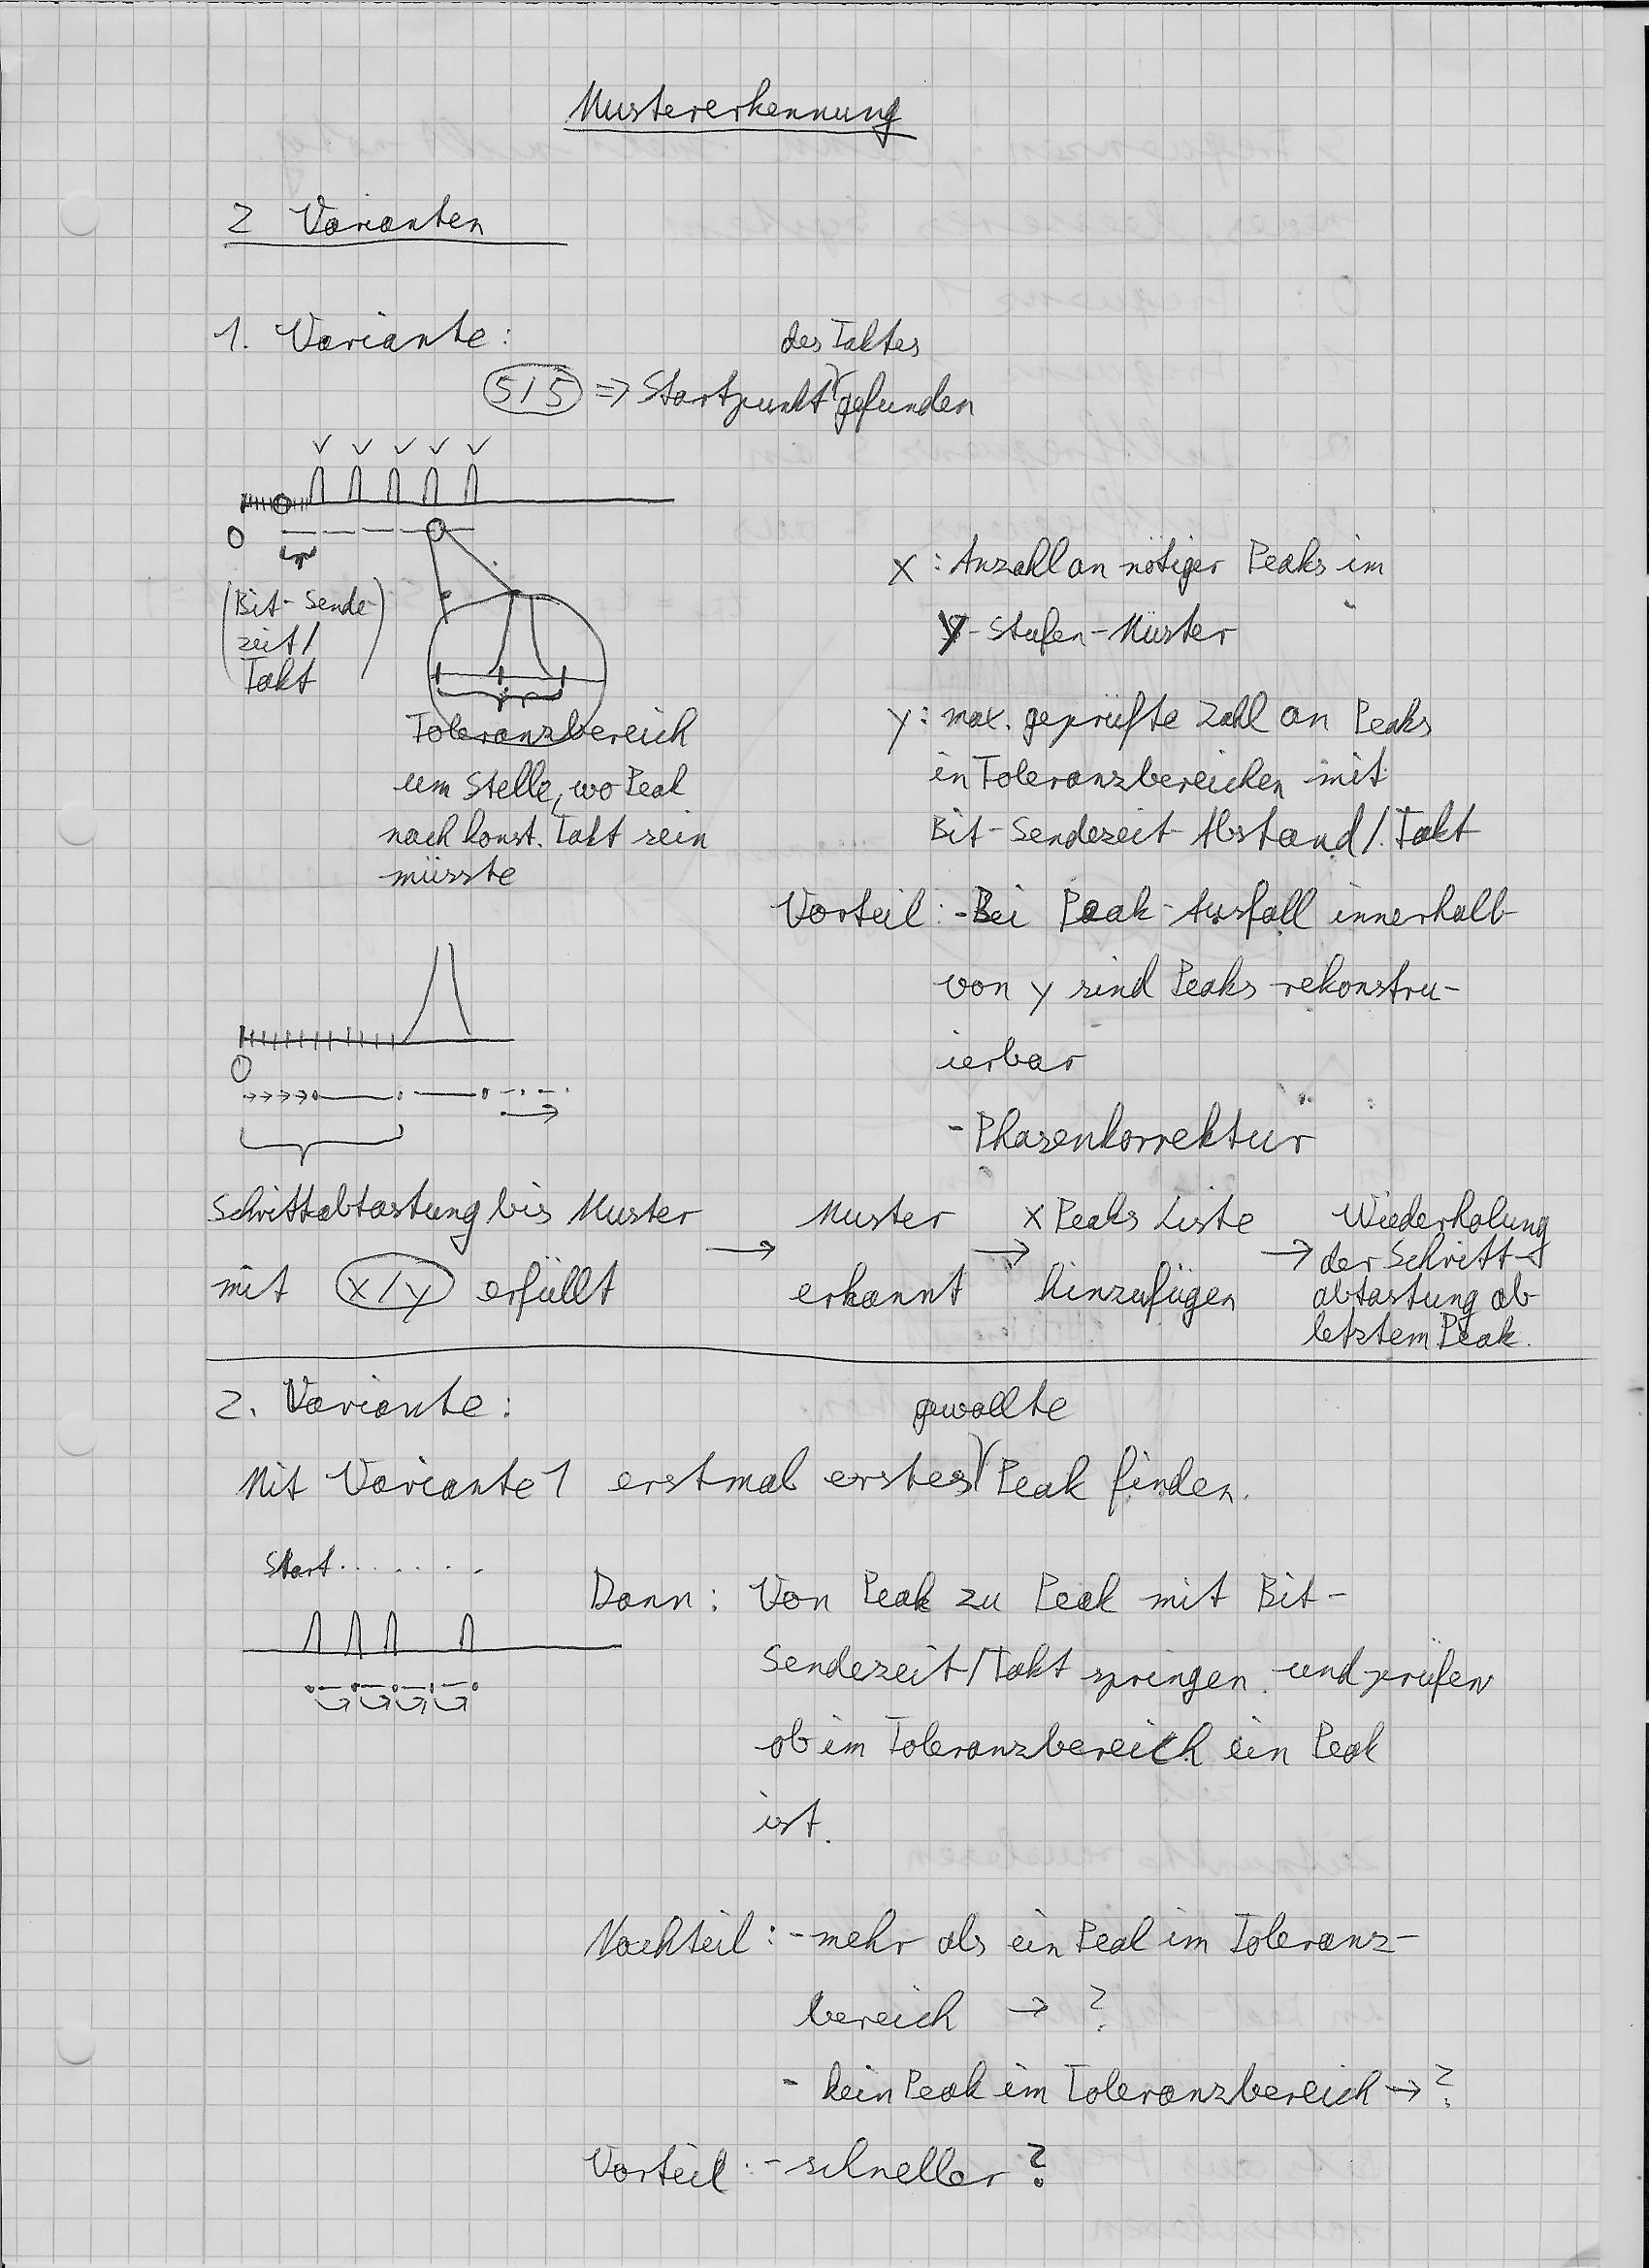 Mustererkennung
2 Varianten
1. Variante:
des Taktes
5/5 => Startpunkt gefunden
0
(Bit-Sende
zeit/
Takt)
Toleranzbereich
um Stelle, wo Peak
nach konst. Takt sein
müsste
x: Anzahl an nötiger Peaks im
y-Stufen-Muster
y: max. geprüfte Zahl an Peaks
in Toleranzbereichen mit
Bit-Sendezeit-Abstand/Takt
Vorteil: -Bei Peak-Ausfall innerhalb
von y sind Peaks rekonstru-
ierbar
- Phasenkorrektur
0
Schrittabtastung bis Muster
mit x/y erfüllt
→ Muster
erkannt
→ x Peaks Liste
hinzufügen
→ Wiederholung
der Schritt-
abtastung ab
letztem Peak.
2. Variante:
gewollte
Mit Variante 1 erstmal erstes Peak finden.
Start.......
Dann: Von Peak zu Peak mit Bit-
Sendezeit/Takt springen und prüfen
ob im Toleranzbereich ein Peak
ist.
Nachteil: - mehr als ein Peak im Toleranz-
bereich → ?
- kein Peak im Toleranzbereich → ?
Vorteil: - schneller ?